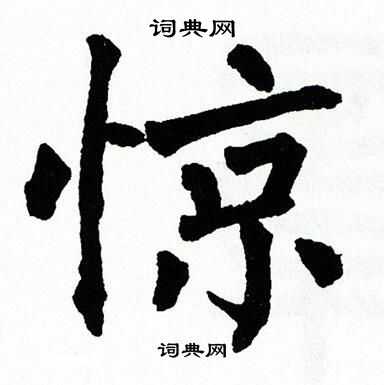 词典网
惊
词典网